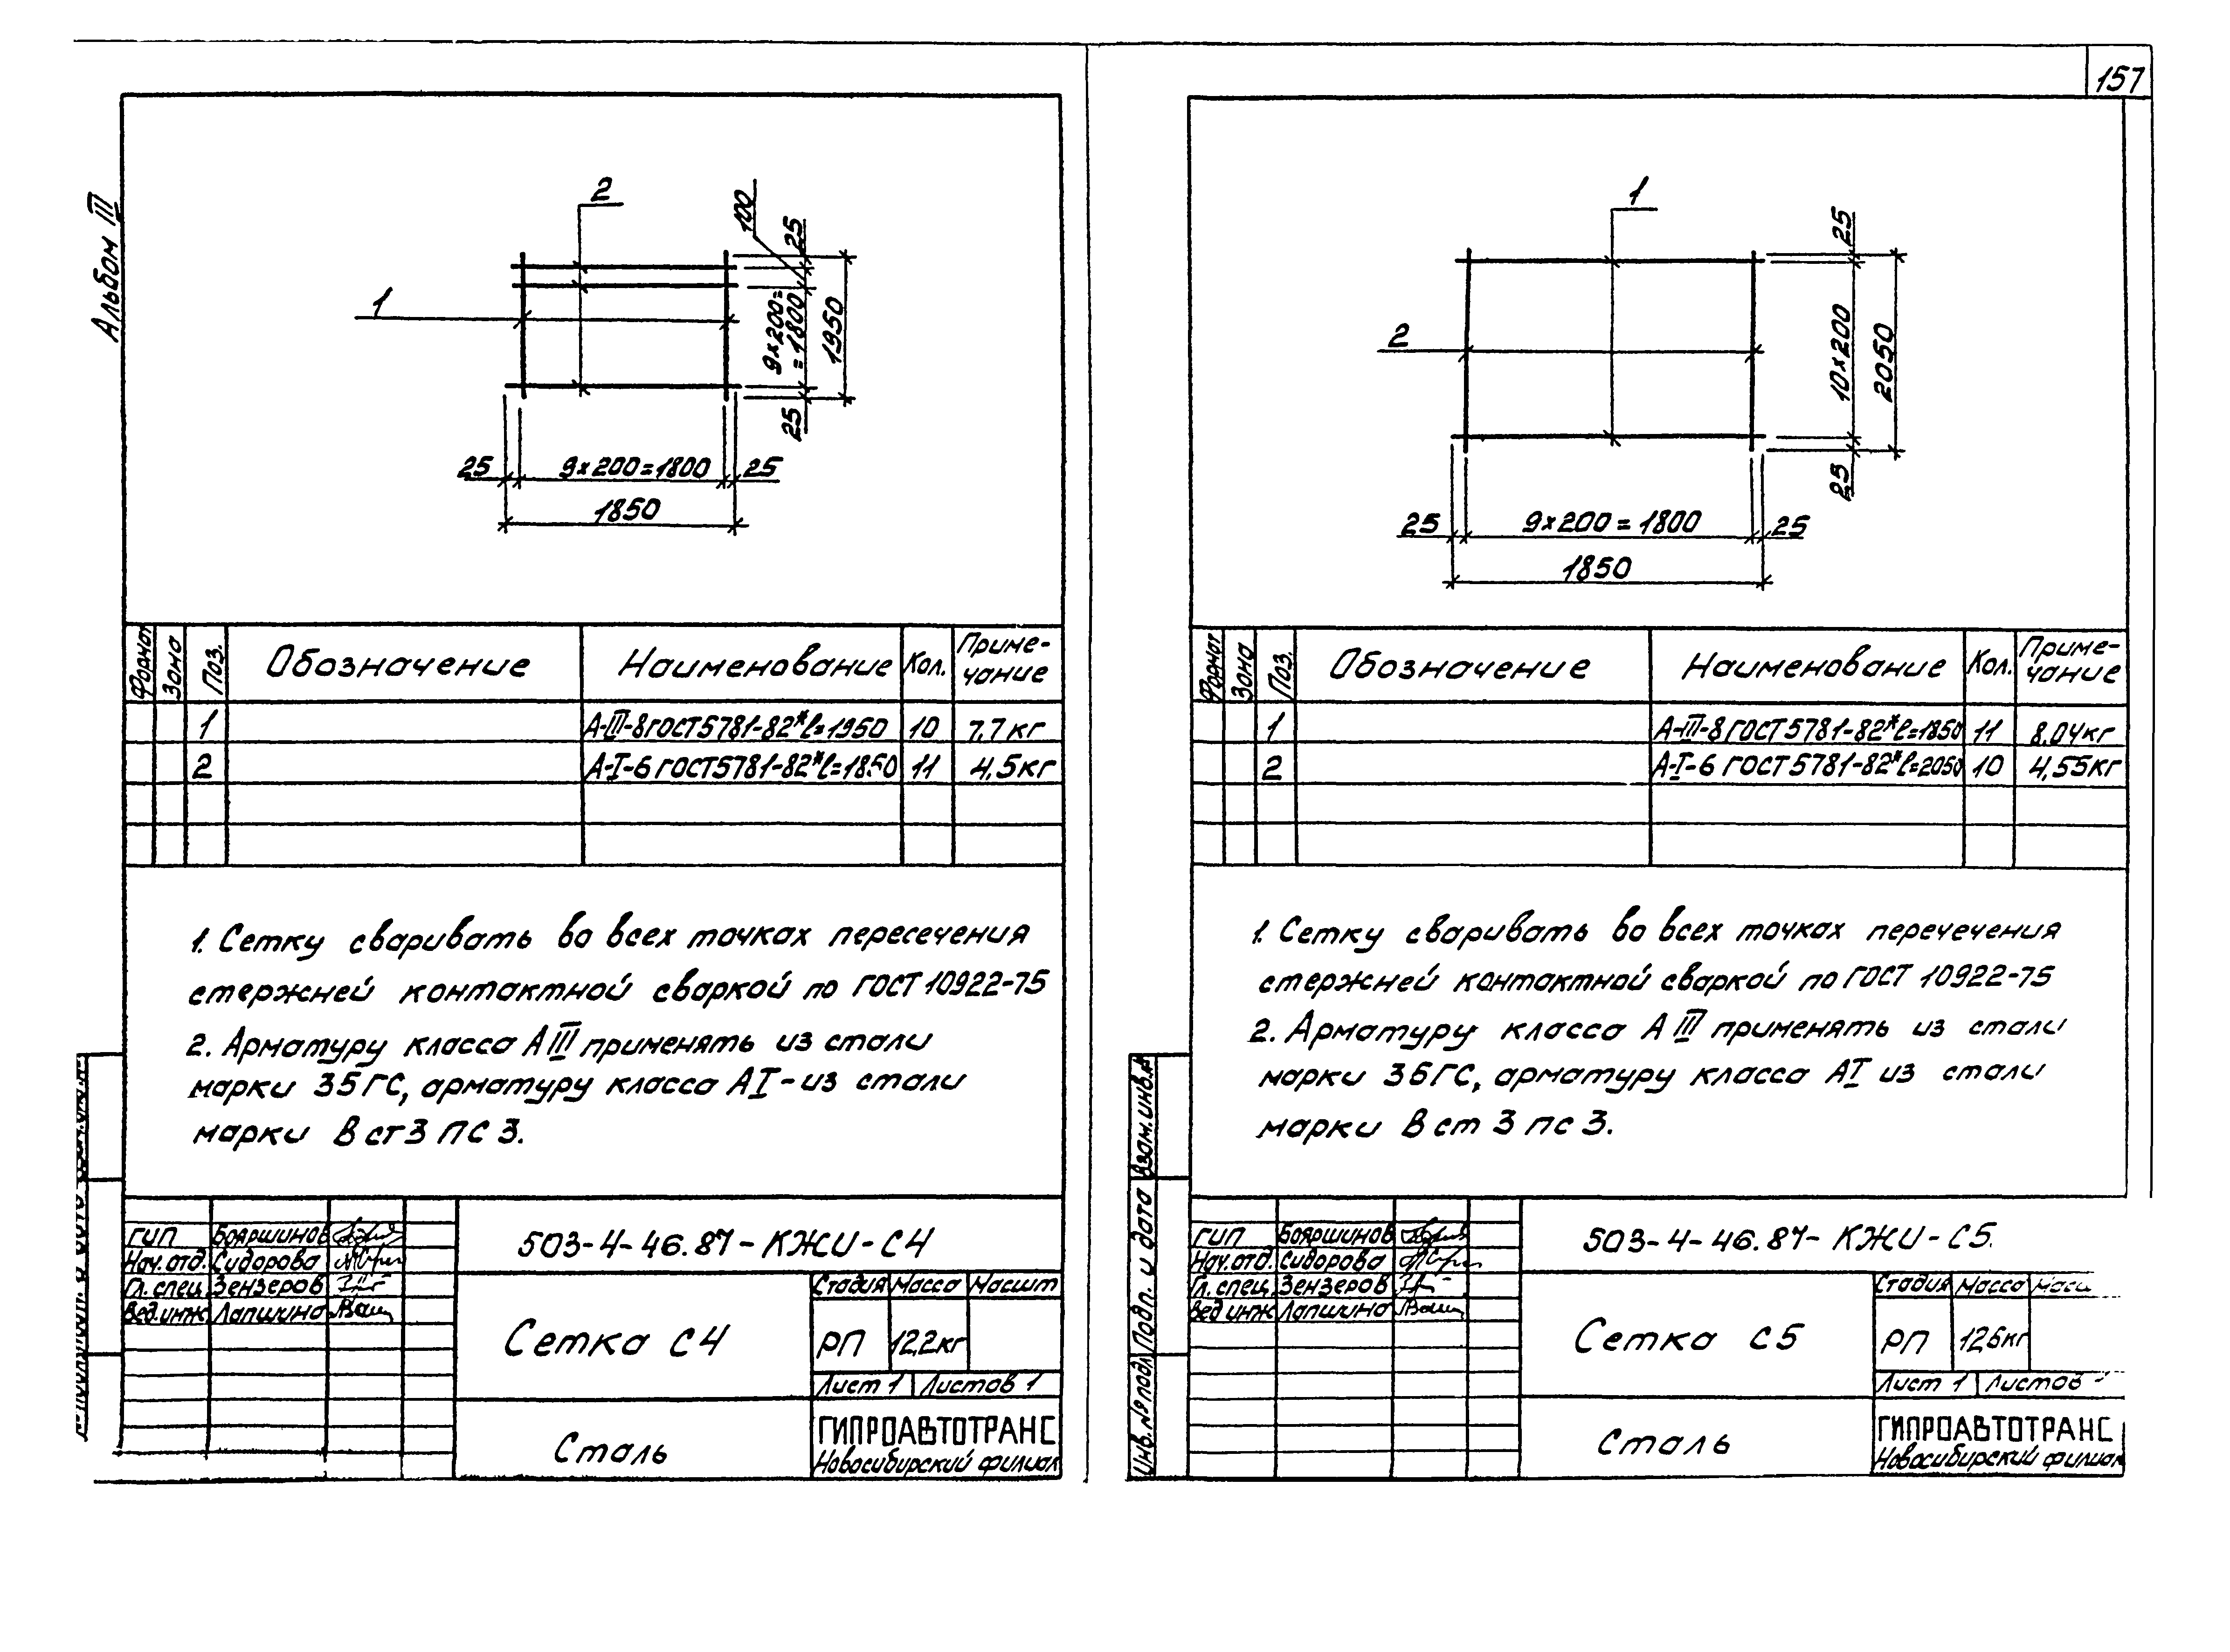 157
Альбом III
2
1
100
25
9×200=
=1800
1950
25
25
9×200=1800
25
1850
Формат
Зона
Поз.
Обозначение
Наименование
Кол.
Приме-
чание
1
А-III-8 ГОСТ 5781-82* l=1950
10
7,7 кг
2
А-I-6 ГОСТ 5781-82* l=1850
11
4,5 кг
1. Сетку сваривать во всех точках пересечения
стержней контактной сваркой по ГОСТ 10922-75
2. Арматуру класса А III применять из стали
марки 35ГС, арматуру класса АI - из стали
марки В ст 3 пс 3.
ГИП Бояршинов
Нач.отд. Сидорова
Гл.спец. Зензеров
Вед.инж. Лапшина
503-4-46.87-КЖИ-С4
Сетка С4
Стадия Масса Масшт
РП 12,2кг
Лист 1 Листов 1
Сталь
ГИПРОАВТОТРАНС
Новосибирский филиал
1
2
25
10×200
2050
25
25
9×200=1800
25
1850
Формат
Зона
Поз.
Обозначение
Наименование
Кол.
Приме-
чание
1
А-III-8 ГОСТ 5781-82* l=1850
11
8,04кг
2
А-I-6 ГОСТ 5781-82* l=2050
10
4,55кг
1. Сетку сваривать во всех точках перечечения
стержней контактной сваркой по ГОСТ 10922-75
2. Арматуру класса А III применять из стали
марки 35ГС, арматуру класса АI из стали
марки В ст 3 пс 3.
Взам.инв.№
Подп. и дата
Инв.№подл
ГИП Бояршинов
Нач.отд. Сидорова
Гл.спец. Зензеров
Вед.инж Лапшина
503-4-46.87-КЖИ-С5.
Сетка С5
Стадия Масса Масш
РП 12,6кг
Лист 1 Листов
Сталь
ГИПРОАВТОТРАНС
Новосибирский филиал